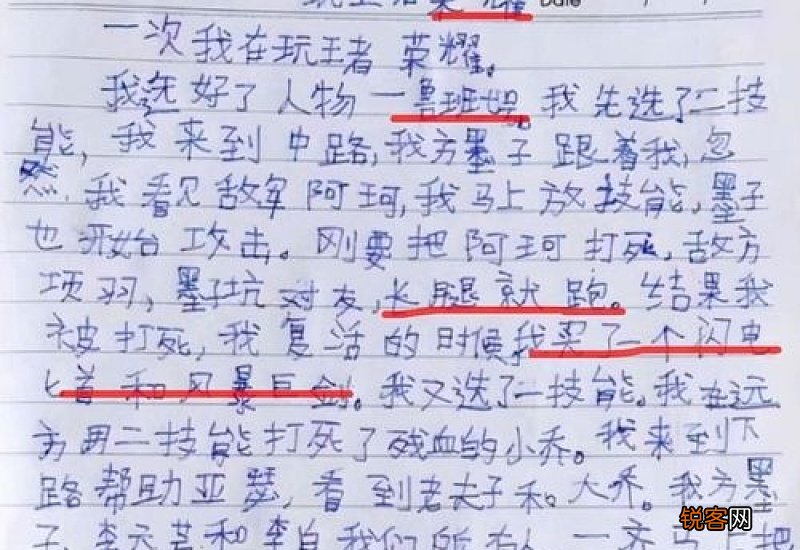 玩王者荣耀 Date
一次我在玩王者荣耀。
我选好了人物一鲁班大师 我先选了二技
能，我来到中路，我方墨子跟着我，忽
然，我看见敌军阿珂，我马上放技能，墨子
也开始攻击。刚要把阿珂打死，敌方
项羽，墨子坑对友，长腿就跑。结果我
被打死，我复活的时候，我买了一个闪电
匕首和风暴巨剑。我又选了一技能。我在远
方用二技能打死了残血的小乔。我来到下
路帮助亚瑟，看到老夫子和大乔。我方墨
子，李元芳和李白我们所有人一齐马上把
锐客网